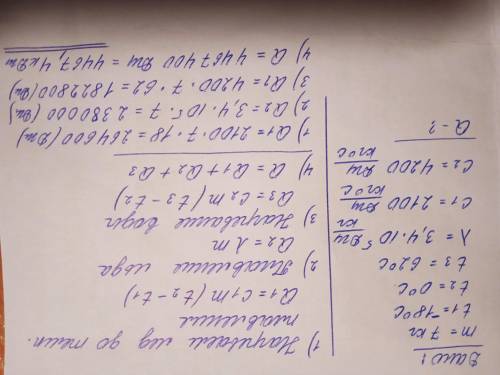 Дано:
m = 7 кг
t₁ = -18°C
t₂ = 0°C
t₃ = 62°C
λ = 3,4 · 10⁵ Дж/кг
c₁ = 2100 Дж/кг°C
c₂ = 4200 Дж/кг°C
Q - ?
1) Нагреваем лёд до темп.
плавления
Q₁ = c₁m (t₂ - t₁)
2) Плавление льда
Q₂ = λ m
3) Нагревание воды
Q₃ = c₂m (t₃ - t₂)
4) Q = Q₁ + Q₂ + Q₃
1) Q₁ = 2100 · 7 · 18 = 264600 (Дж)
2) Q₂ = 3,4 · 10⁵ · 7 = 2380000 (Дж)
3) Q₂ = 4200 · 7 · 62 = 1822800 (Дж)
4) Q = 4467400 Дж = 4467,4 кДж